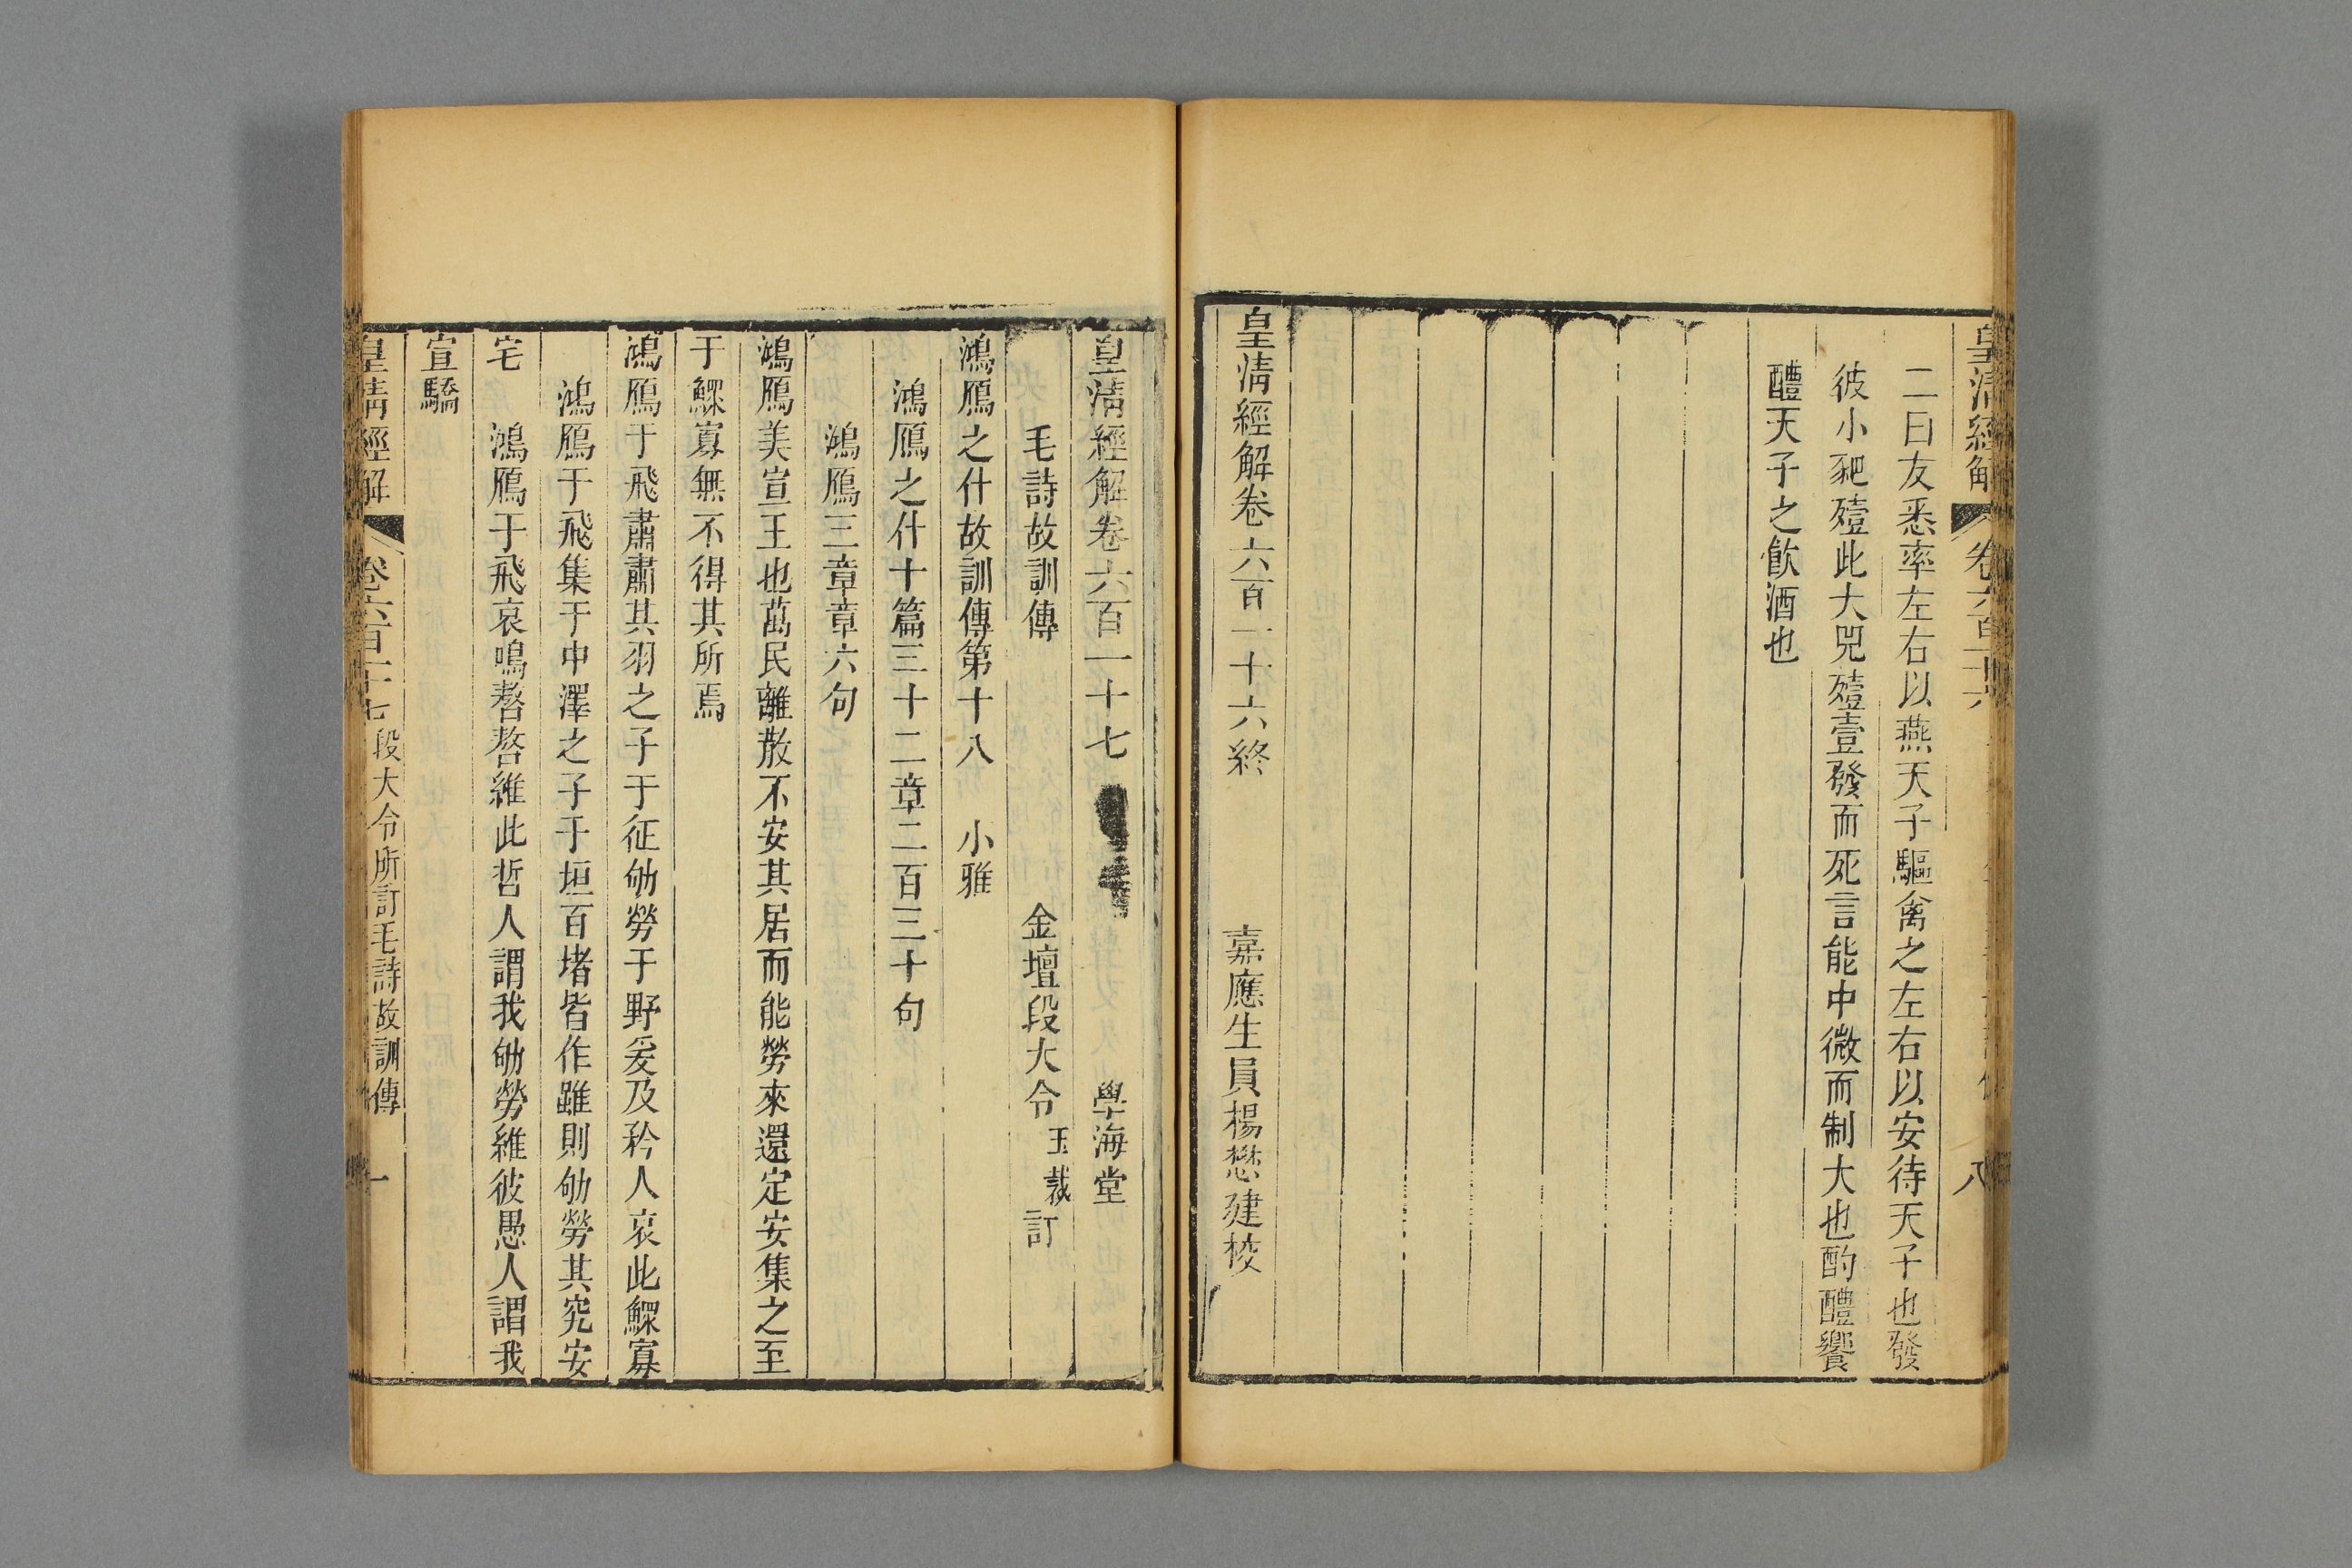 皇清經解 卷六百一十六 八
二曰友悉率左右以燕天子驅禽之左右以安待天子也發
彼小豝殪此大兕殪壹發而死言能中微而制大也酌醴饗
醴天子之飮酒也
皇清經解卷六百一十六終 嘉應生員楊懋建校
皇清經解卷六百一十七 學海堂
毛詩故訓傳 金壇段大令玉裁訂
鴻鴈之什故訓傳第十八 小雅
鴻鴈之什十篇三十二章二百三十句
鴻鴈三章章六句
鴻鴈美宣王也萬民離散不安其居而能勞來還定安集之至
于鰥寡無不得其所焉
鴻鴈于飛肅肅其羽之子于征劬勞于野爰及矜人哀此鰥寡
鴻鴈于飛集于中澤之子于垣百堵皆作雖則劬勞其究安
宅 鴻鴈于飛哀鳴嗸嗸維此哲人謂我劬勞維彼愚人謂我
宣驕
皇清經解 卷六百一十七 段大令所訂毛詩故訓傳 一